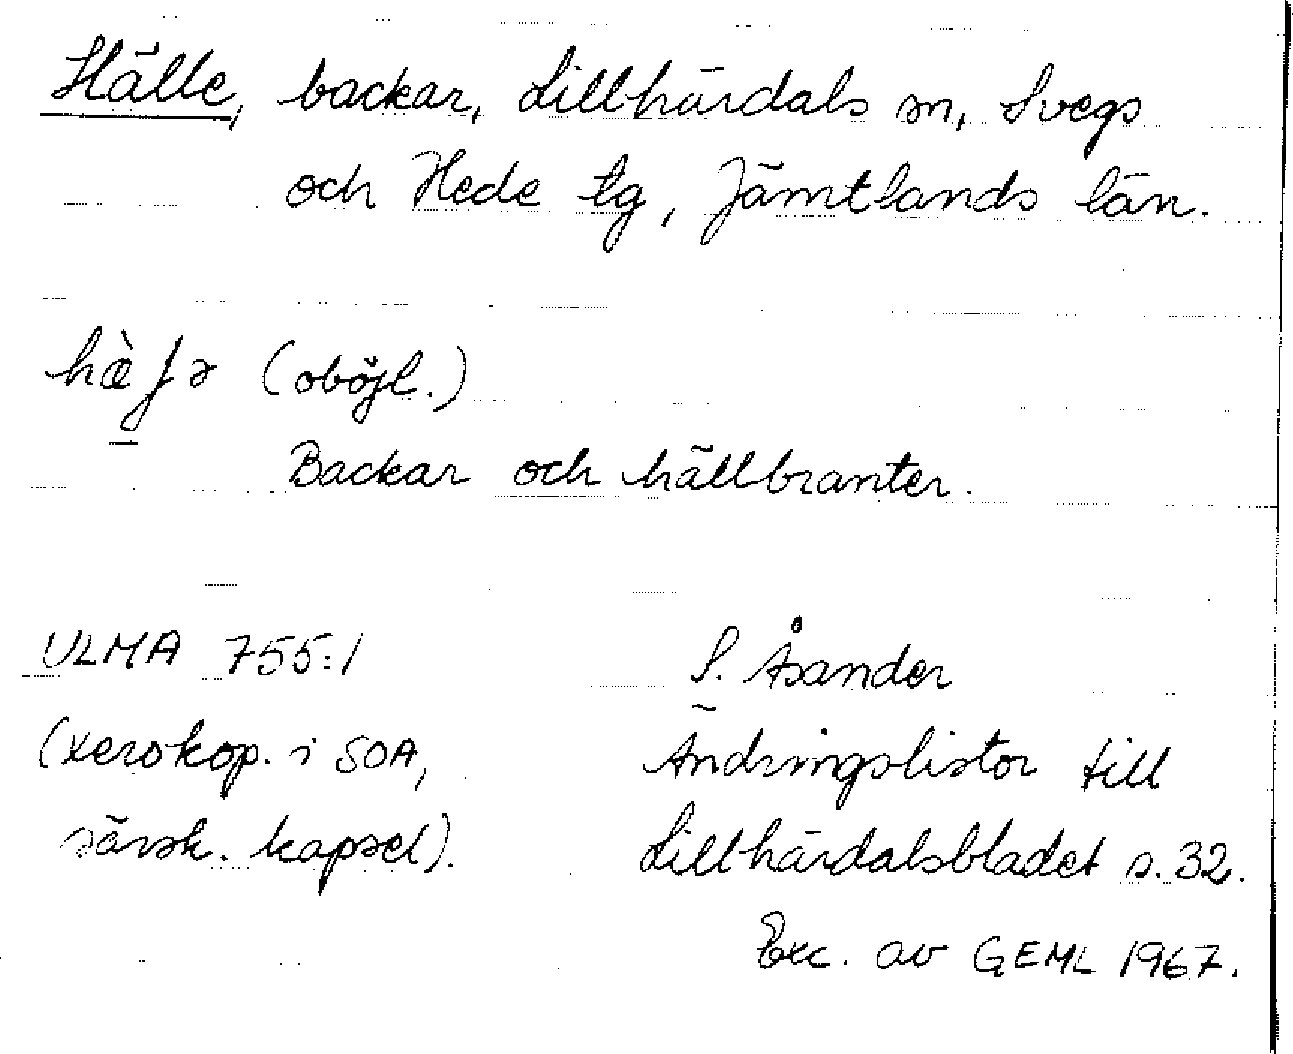 Hälle, backar, Lillhärdals sn, Svegs
och Hede tg, Jämtlands län.
(oböjl.)
Backar och hällbranter.
ULMA 755:1
S. Åsander
(xerokop. i SOA,
Ändringslistor till
särsk. kapsel).
Lillhärdalsbladet s. 32.
Exc. av GEML 1967.